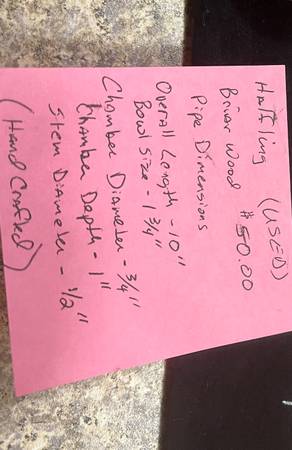 Halfling (USED)
Briar Wood $50.00
Pipe Dimensions
Overall Length - 10"
Bowl Size - 1 3/4"
Chamber Diameter - 3/4"
Chamber Depth - 1"
Stem Diameter - 1/2"
(Hand Crafted)